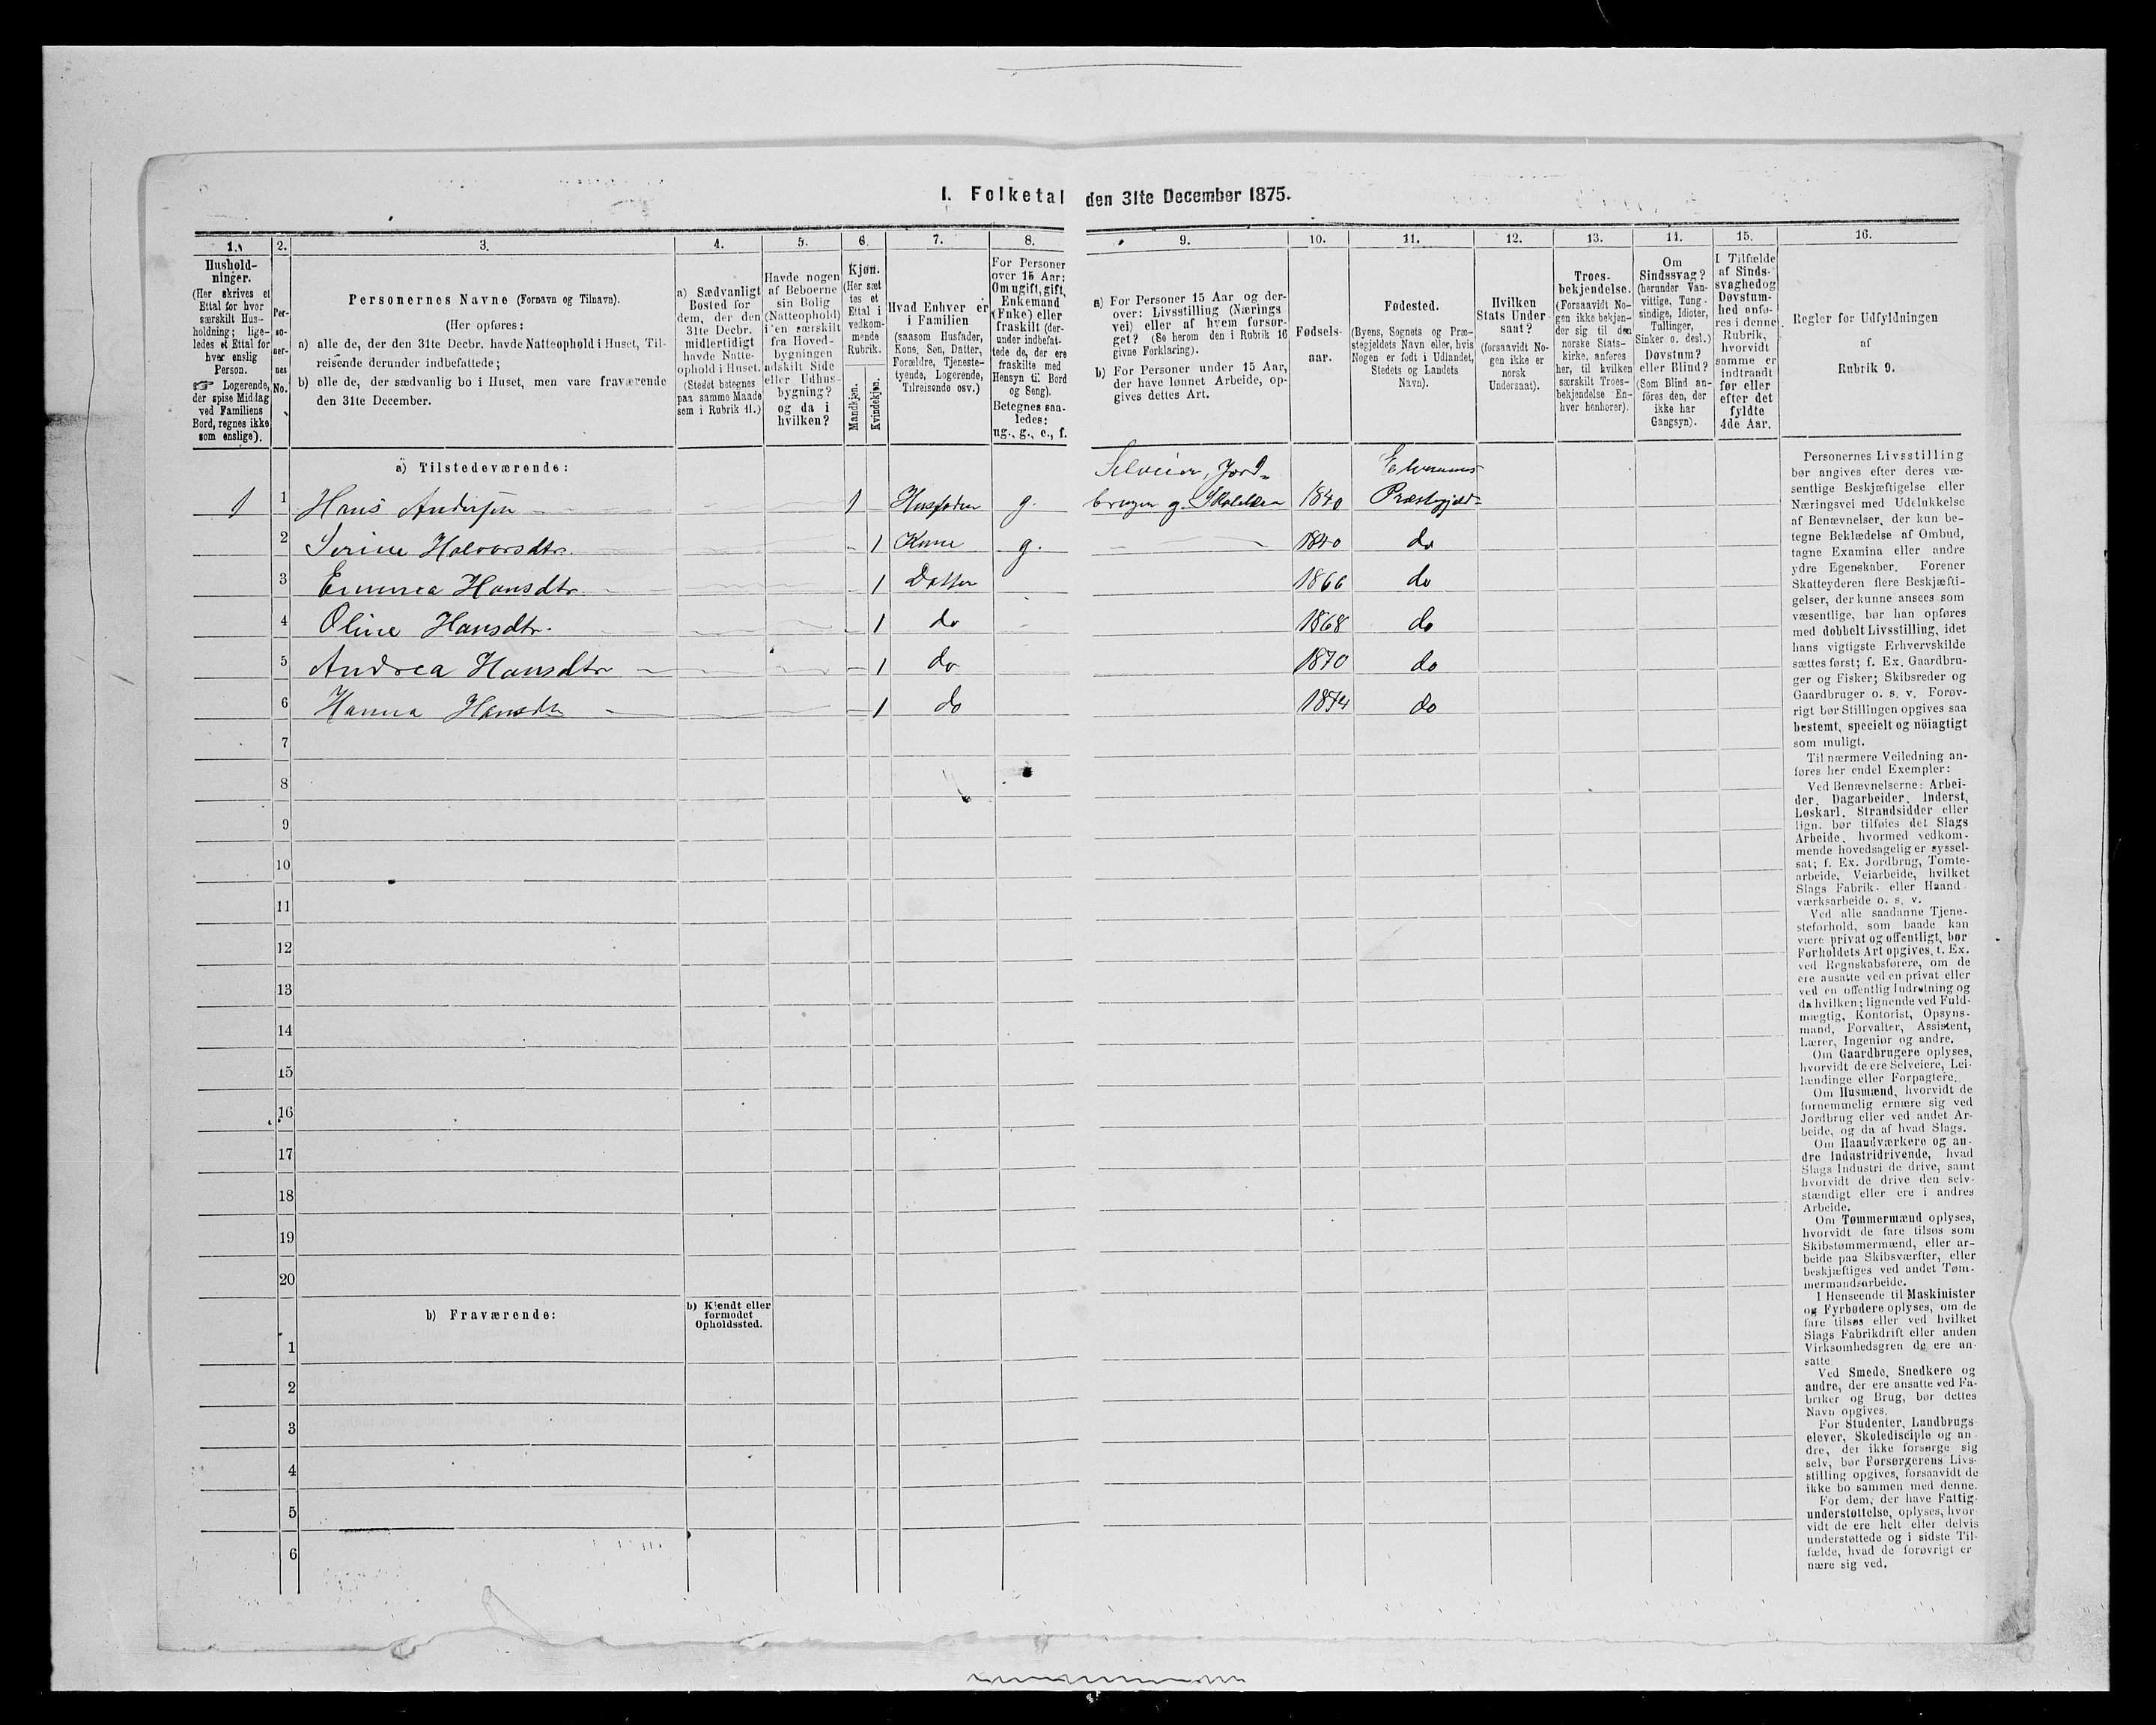 I. Folketal den 31te December 1875.
1.
Hushold-
ninger.
(Her skrives et
Ettal for hver
særskilt Hus-
holdning; lige-
ledes et Ettal for
hver enslig
Person.
☞ Logerende,
der spise Middag
ved Familiens
Bord, regnes ikke
som enslige).
2.
Per-
so-
ner-
nes
No.
3.
Personernes Navne (Fornavn og Tilnavn).
(Her opføres:
a) alle de, der den 31te Decbr. havde Natteophold i Huset, Til-
reisende derunder indbefattede;
b) alle de, der sædvanlig bo i Huset, men vare fraværende
den 31te December.
4.
a) Sædvanligt
Bosted for
dem, der den
31te Decbr.
midlertidigt
havde Natte-
ophold i Huset.
(Stedet betegnes
paa samme Maade
som i Rubrik 11.)
5.
Havde nogen
af Beboerne
sin Bolig
(Natteophold)
i en særskilt
fra Hoved-
bygningen
adskilt Side
eller Udhus-
bygning?
og da i
hvilken?
6.
Kjøn.
(Her sæt
tes et
Ettal i
vedkom-
mende
Rubrik.
Mandkjøn.
Kvindekjøn.
7.
Hvad Enhver er
i Familien
(saasom Husfader,
Kone, Søn, Datter,
Forældre, Tjeneste-
tyende, Logerende,
Tilreisende osv.)
8.
For Personer
over 15 Aar:
Om ugift, gift,
Enkemand
(Enke) eller
fraskilt (der-
under indbefat-
tede de, der ere
fraskilte med
Hensyn til Bord
og Seng).
Betegnes saa-
ledes:
ug., g., e., f.
9.
a) For Personer 15 Aar og der-
over: Livsstilling (Nærings
vei) eller af hvem forsør-
get? (Se herom den i Rubrik 16
givne Forklaring).
b) For Personer under 15 Aar,
der have lønnet Arbeide, op-
gives dettes Art.
10.
Fødsels-
aar.
11.
Fødested.
(Byens, Sognets og Præ-
stegjeldets Navn eller, hvis
Nogen er født i Udlandet,
Stedets og Landets
Navn).
12.
Hvilken
Stats Under
saat?
(forsaavidt No-
gen ikke er
norsk
Undersaat).
13.
Troes-
bekjendelse.
(Forsaavidt No-
gen ikke bekjen-
der sig til den
norske Stats-
kirke, anføres
her, til hvilken
særskilt Troes-
bekjendelse En-
hver henhører).
14.
Om
Sindssvag?
(herunder Van-
vittige, Tung-
sindige, Idioter,
Tullinger,
Sinker o. desl.)
Døvstum?
eller Blind?
(Som Blind an-
føres den, der
ikke har
Gangsyn).
15.
I Tilfælde
af Sinds-
svaghed og
Døvstum-
hed anfø-
res i denne
Rubrik,
hvorvidt
samme er
indtraadt
før eller
efter det
fyldte
4de Aar.
16.
Regler for Udfyldningen
af
Rubrik 9.
a) Tilstedeværende:
Selveier, Jord- Elverums
1 1 Hans Andersen 1 Husfader g. bruger g. 1840 Præstegjeld
2 Serine Halvorsdtr. 1 Kone g. 1840 do
3 Emma Hansdtr 1 Datter 1866 do
4 Oline Hansdtr. 1 do 1868 do
5 Andrea Hansdtr 1 do 1870 do
6 Hanna Hansdtr 1 do 1874 do
7
8
9
10
11
12
13
14
15
16
17
18
19
20
b) Fraværende:
b) Kjendt eller
formodet
Opholdssted.
1
2
3
4
5
6
Personernes Livsstilling
bør angives efter deres væ-
sentlige Beskjæftigelse eller
Næringsvei med Udelukkelse
af Benævnelser, der kun be-
tegne Beklædelse af Ombud,
tagne Examina eller andre
ydre Egenskaber. Forener
Skatteyderen flere Beskjæfti-
gelser, der kunne ansees som
væsentlige, bør han opføres
med dobbelt Livsstilling, idet
hans vigtigste Erhvervskilde
sættes først; f. Ex. Gaardbru-
ger og Fisker; Skibsreder og
Gaardbruger o. s. v. Forøv-
rigt bør Stillingen opgives saa
bestemt, specielt og nöiagtigt
som muligt.
Til nærmere Veiledning an-
føres her endel Exempler:
Ved Benævnelserne: Arbei-
der, Dagarbeider, Inderst,
Løskarl, Strandsidder eller
lign. bør tilføies det Slags
Arbeide, hvormed vedkom-
mende hovedsagelig er syssel-
sat; f. Ex. Jordbrug, Tomte-
arbeide, Veiarbeide, hvilket
Slags Fabrik- eller Haand-
værksarbeide o. s. v.
Ved alle saadanne Tjene-
steforhold, som baade kan
være privat og offentligt, bør
Forholdets Art opgives, t. Ex.
ved Regnskabsførere, om de
ere ansatte ved en privat eller
ved en offentlig Indretning og
da hvilken; lignende ved Fuld-
mægtig, Kontorist, Opsyns-
mand, Forvalter, Assistent,
Lærer, Ingeniør og andre.
Om Gaardbrugere oplyses,
hvorvidt de ere Selveiere, Lei-
lændinge eller Forpagtere.
Om Husmænd, hvorvidt de
fornemmelig ernære sig ved
Jordbrug eller ved andet Ar-
beide, og da af hvad Slags.
Om Haandværkere og an-
dre Industridrivende, hvad
Slags Industri de drive, samt
hvorvidt de drive den selv-
stændigt eller ere i andres
Arbeide.
Om Tømmermænd oplyses,
hvorvidt de fare tilsøs som
Skibstømmermænd, eller ar-
beide paa Skibsværfter, eller
beskjæftiges ved andet Tøm-
mermandsarbeide.
I Henseende til Maskinister
og Fyrbødere oplyses, om de
fare tilsøs eller ved hvilket
Slags Fabrikdrift eller anden
Virksomhedsgren de ere an-
satte.
Ved Smede, Snedkere og
andre, der ere ansatte ved Fa-
briker og Brug, bør dettes
Navn opgives.
For Studenter, Landbrugs-
elever, Skoledisciple og an-
dre, der ikke forsørge sig
selv, bør Forsørgerens Livs-
stilling opgives, forsaavidt de
ikke bo sammen med denne.
For dem, der have Fattig-
understøttelse, oplyses, hvor-
vidt de ere helt eller delvis
understøttede og i sidste Til-
fælde, hvad de forøvrigt er
nære sig ved.